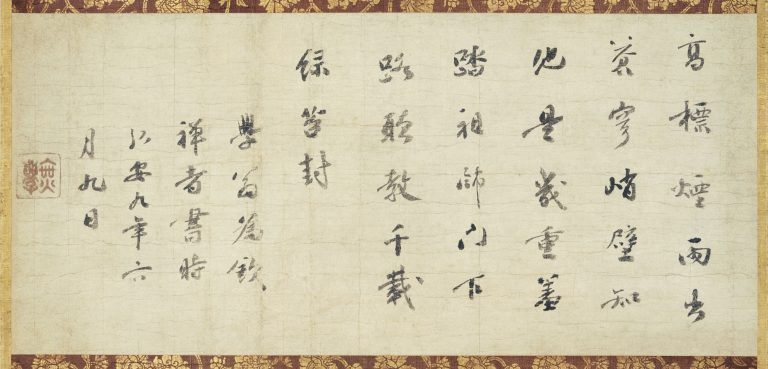 高標煙雨出
蒼穹峭壁知
他是幾重羞
踏祖師門下
路聽教千載
緑苔封
學翁為欽
禅者書時
弘安九年六
月九日
無學